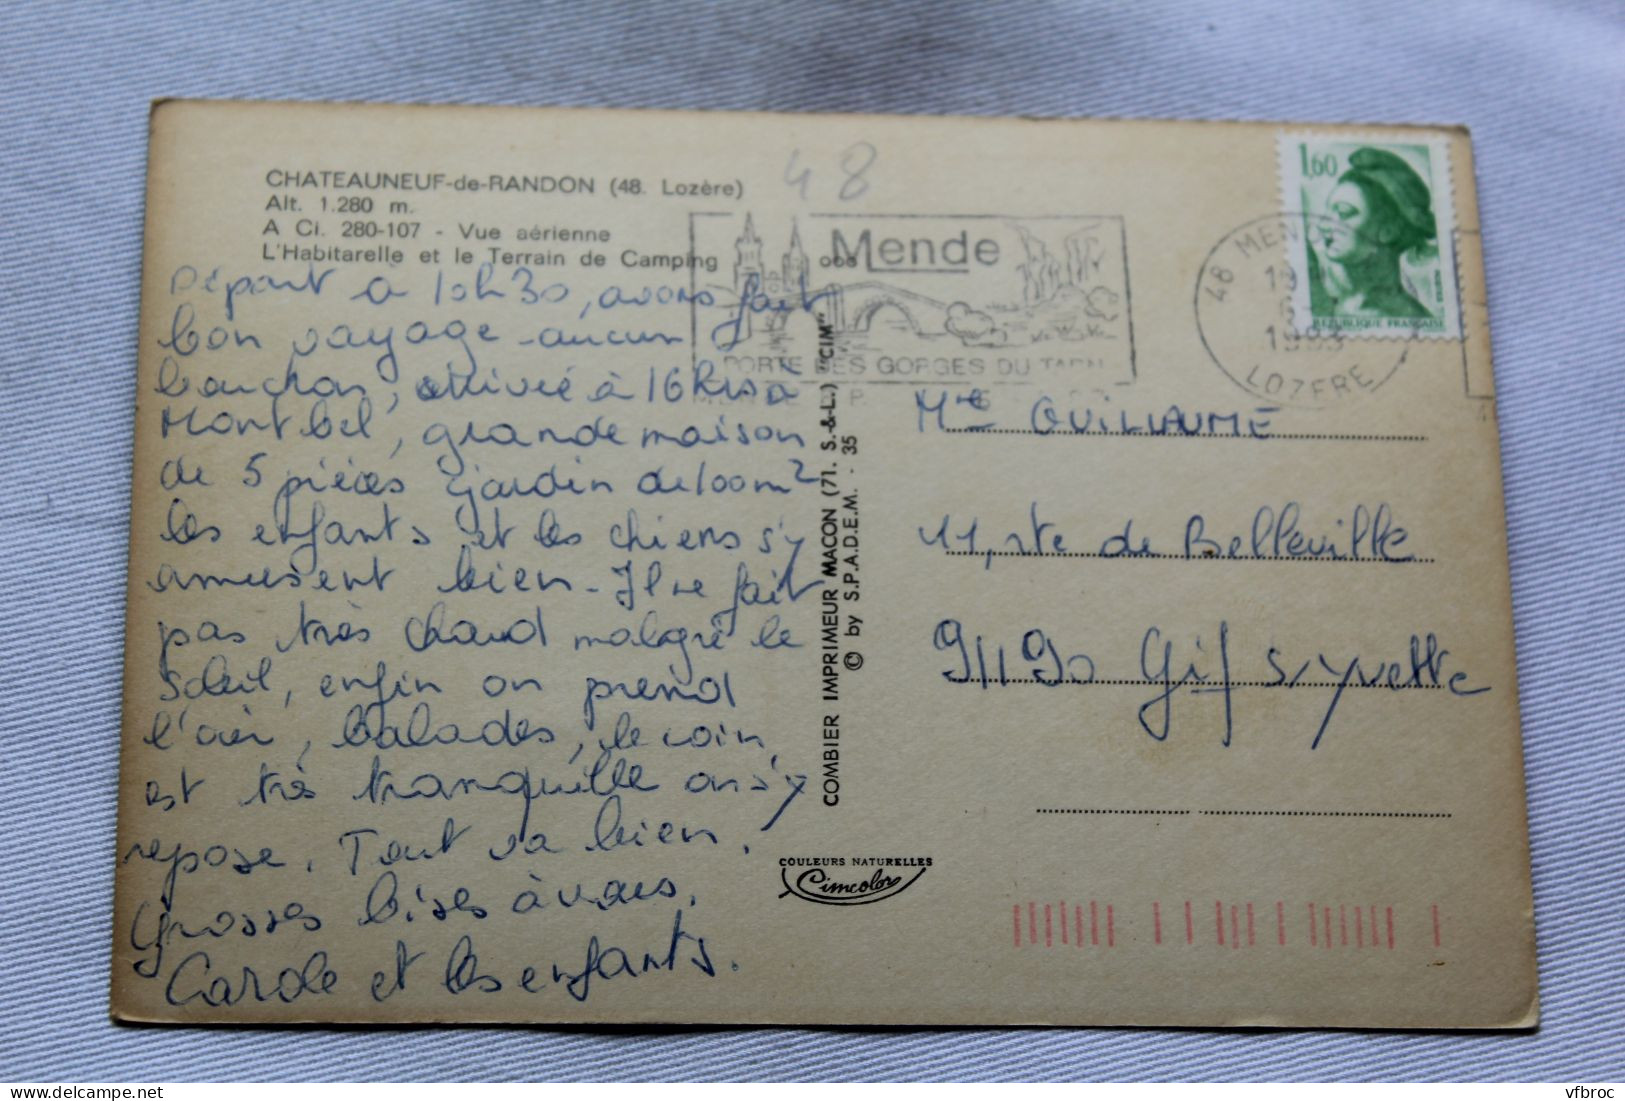 CHATEAUNEUF-de-RANDON (48. Lozère)
Alt. 1.280 m.
A Ci. 280-107 - Vue aérienne
L'Habitarelle et le Terrain de Camping
48
Mende
PORTE DES GORGES DU TARN
48 MENDE
1983
LOZERE
1,60
REPUBLIQUE FRANÇAISE
Départ à 10h30, avons fait
bon voyage - aucun
bouchon, arrivée à 16h
Montbel, grande maison
de 5 pièces jardin de 100 m2
les enfants et les chiens s'y
amusent bien - Il ne fait
pas très chaud malgré le
soleil, enfin on prend
l'air, balades, le coin
est très tranquille on s'y
repose. Tout va bien.
Grosses bises à vous.
Carole et les enfants.
COMBIER IMPRIMEUR MACON (71. S.-&-L.) "CIM"
© by S.P.A.D.E.M. - 35
COULEURS NATURELLES
Cimcolor
Mme GUILLAUME
11, rte de Belleville
91190 Gif s/yvette
vfbroc